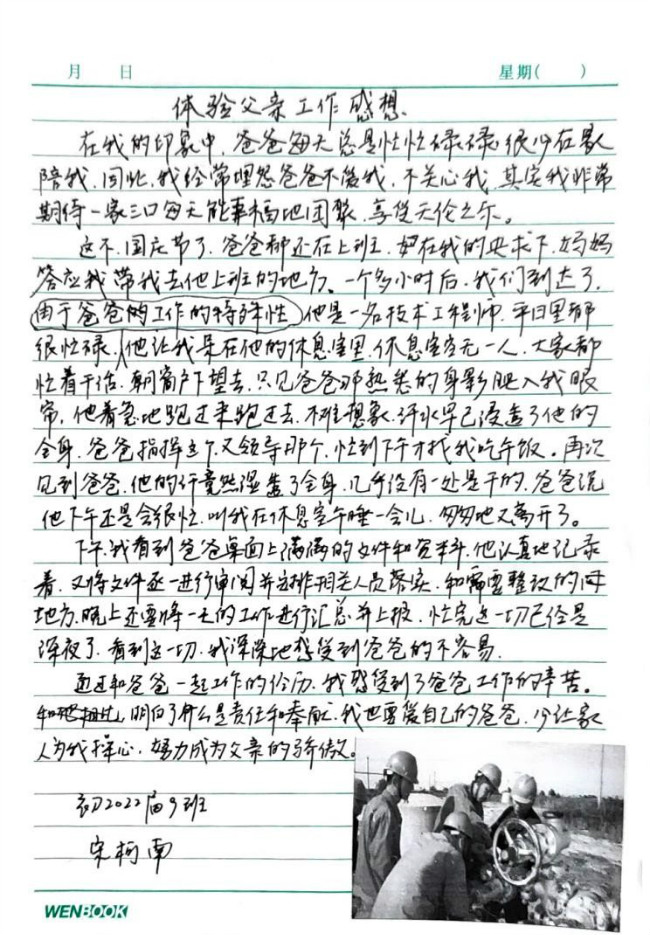 月 日 星期( )
体验父亲工作感想
在我的印象中,爸爸每天总是忙忙碌碌,很少在家
陪我,因此,我经常埋怨爸爸不爱我,不关心我,其实我非常
期待一家三口每天能幸福地团聚,享受天伦之乐。
这不,国庆节了,爸爸都还在上班,好在我的央求下,妈妈
答应我带我去他上班的地方。一个多小时后,我们到达了,
由于爸爸的工作的特殊性,他是一名技术工程师,平日里都
很忙碌,他让我呆在他的休息室里,休息室空无一人,大家都
忙着干活,朝窗户下望去,只见爸爸那熟悉的身影映入我眼
帘,他着急地跑过来跑过去,不难想象,汗水早已浸透了他的
全身,爸爸指挥这个,又领导那个,忙到下午才找我吃午饭。再次
见到爸爸,他的汗竟然湿透了全身,几乎没有一处是干的,爸爸说
他下午还是会很忙,叫我在休息室午睡一会儿,匆匆地又离开了。
下午,我看到爸爸桌面上满满的文件和资料,他认真地记录
着,又将文件逐一进行审阅并安排相关人员落实,和需要整改的
地方,晚上还要将一天的工作进行汇总并上报,忙完这一切已经是
深夜了,看到这一切,我深深地感受到爸爸的不容易。
通过和爸爸一起工作的经历,我感受到了爸爸工作的辛苦。
明白了什么是责任和奉献,我也要爱自己的爸爸,少让家
人为我操心,努力成为父亲的骄傲。
初2022届9班
宋柯南
WENBOOK